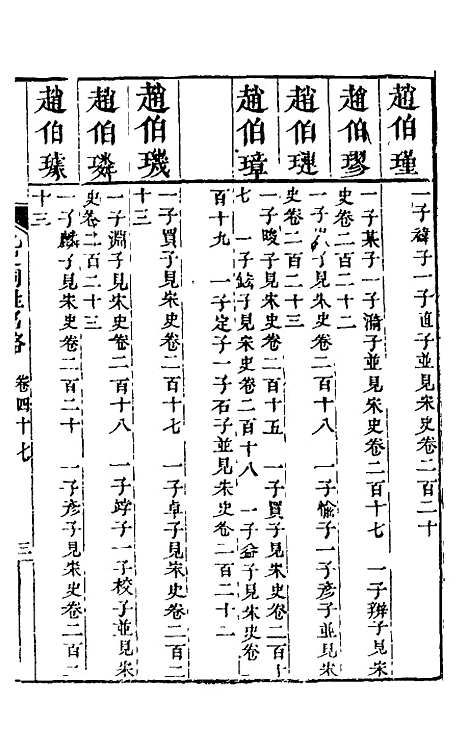 趙伯瑾 一子㙔子一子直子並見宋史卷二百二十
趙伯璆 一子某子一子瀚子並見宋史卷二百十七 一子騈子見宋
史卷二百二十二
趙伯璉 一子 子見宋史卷二百十八 一子愉子一子彥子並見宋
史卷二百二十三
趙伯璋 一子晙子見宋史卷二百十五 一子買子見宋史卷二百十
七 一子鋑子見宋史卷二百十八 一子益子見宋史卷二
百十九 一子定子一子石子並見宋史卷二百二十二
趙伯璣 一子買子見宋史卷二百十七 一子卓子見宋史卷二百二
十三
趙伯璘 一子淵子見宋史卷二百十八 一子㟸子一子校子並見宋
史卷二百二十三
趙伯璩 一子麟子見宋史卷二百二十 一子彥子見宋史卷二百二
十三
同姓名 卷四十七 三